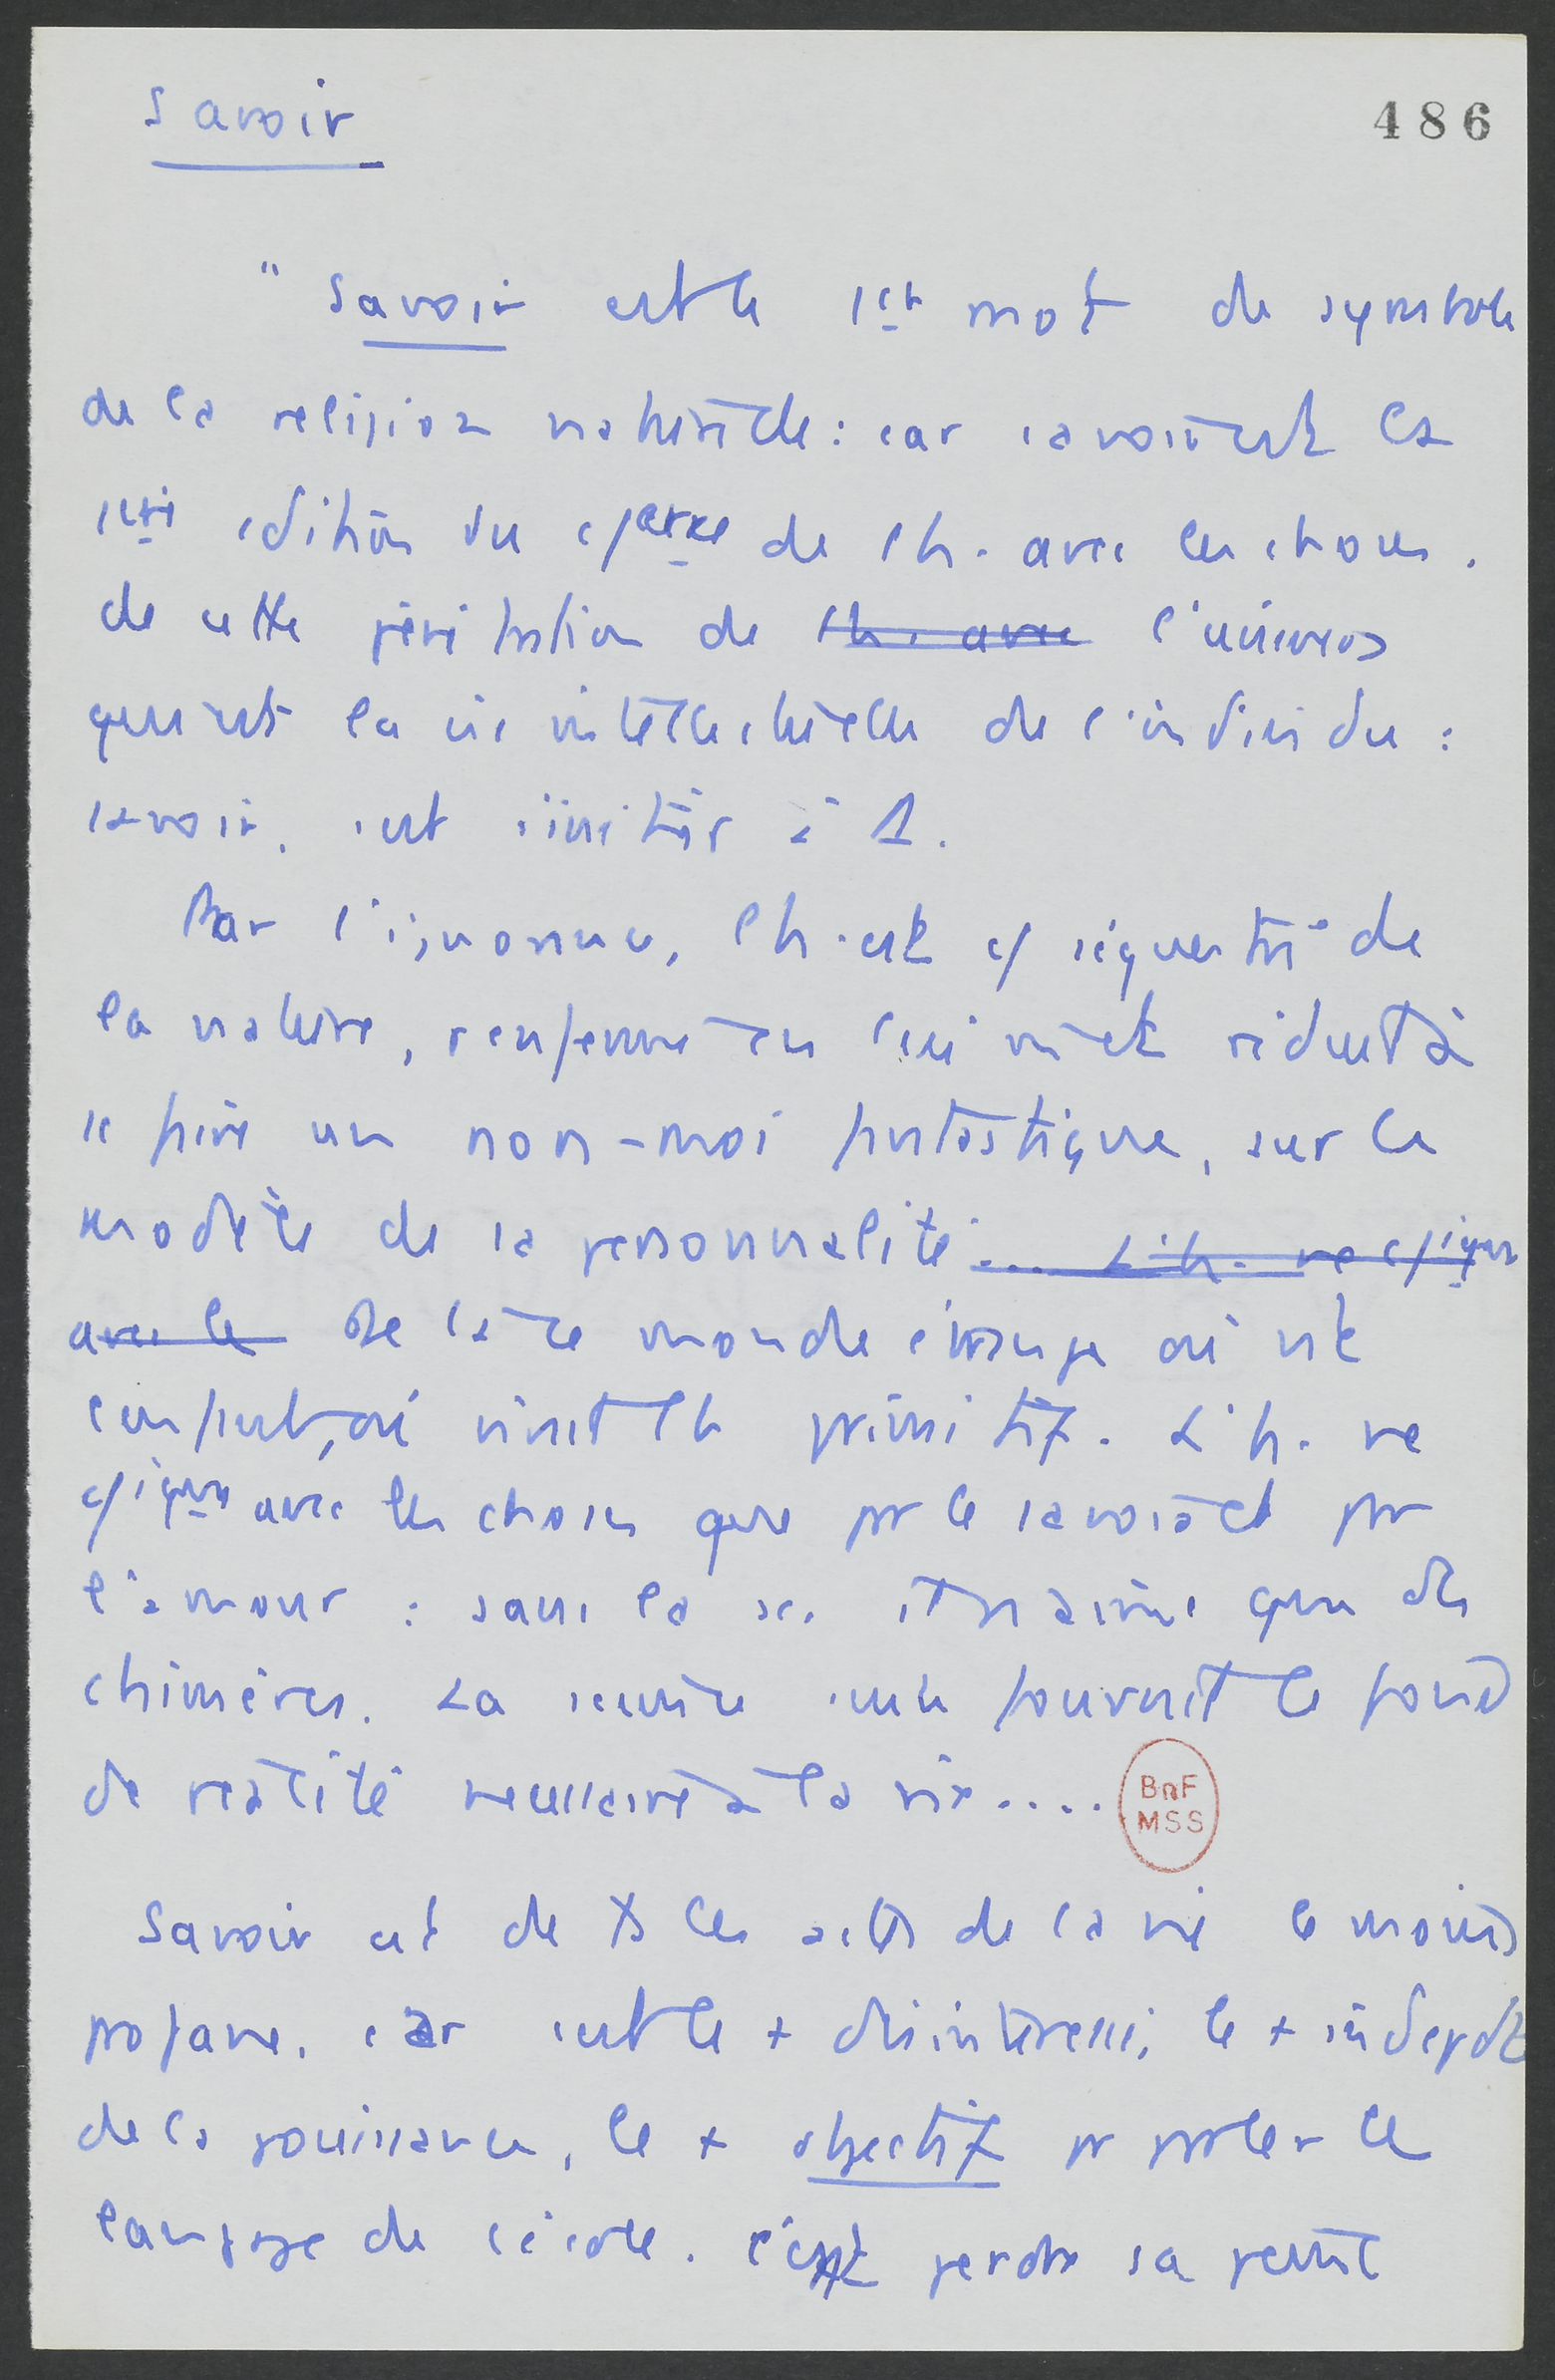 Savoir
486
"Savoir est le 1er mot du symbole
de la religion naturelle : car savoir est la
1ère condition du c/erce de l'h. avec les choses.
de cette pénétration de l'h. avec l'univers
qui est la vie intellectuelle de l'individu :
savoir, c'est s'initier à D.
Par l'ignorance, l'h. est c/ séquestré de
la nature, renfermé en lui-même et réduit à
se faire un non-moi fantastique, sur le
modèle de sa personnalité ... L'h. ne c/ique
avec le De là ce monde étrange où vit
l'enfant, où vivait l'h primitif. L'h. ne
c/ique avec les choses que pr le savoir et pr
l'amour : sans la sc. il n'aime que des
chimères. La science seule fournit le fond
de réalité nécessaire à la vie....
BnF
MSS
Savoir est de ts les actes de la vie le moins
profane, car c'est le + désintéressé, le + indepdt
de la jouissance, le + objectif pr parler le
langage de l'école. C'est perdre sa peine